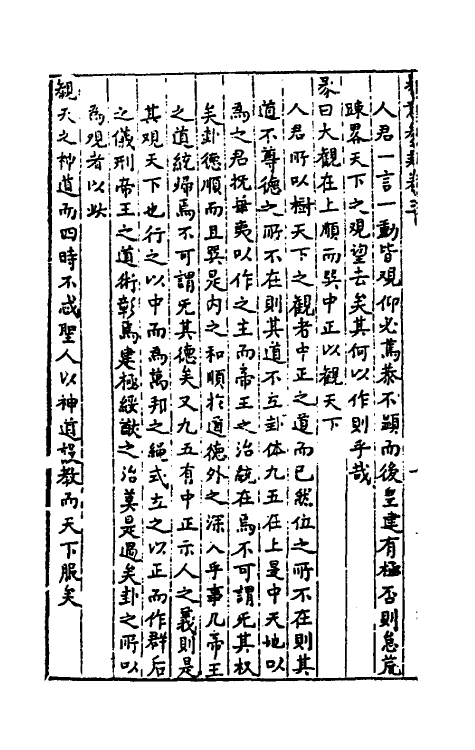 人君一言一動皆觀仰必篤恭不顯而後皇建有極否則怠荒
踈畧天下之觀望去矣其何以作則乎哉
彖曰大觀在上順而巽中正以觀天下
人君所以樹天下之觀者中正之道而已然位之所不在則其
道不尊德之所不在則其道不立卦体九五在上是中天地以
為之君抚華夷以作之主而帝王之治統在焉不可謂旡其权
矣卦德順而且巽是内之和順扵道德外之深入乎事凡帝王
之道統㱕焉不可謂旡其德矣又九五有中正示人之義則是
其观天下也行之以中而為萬邦之䋲式立之以正而作群后
之儀刑帝王之道術彰焉建極綏猷之治莫是過矣卦之所以
為观者以此
觀天之神道而四時不忒聖人以神道設教而天下服矣